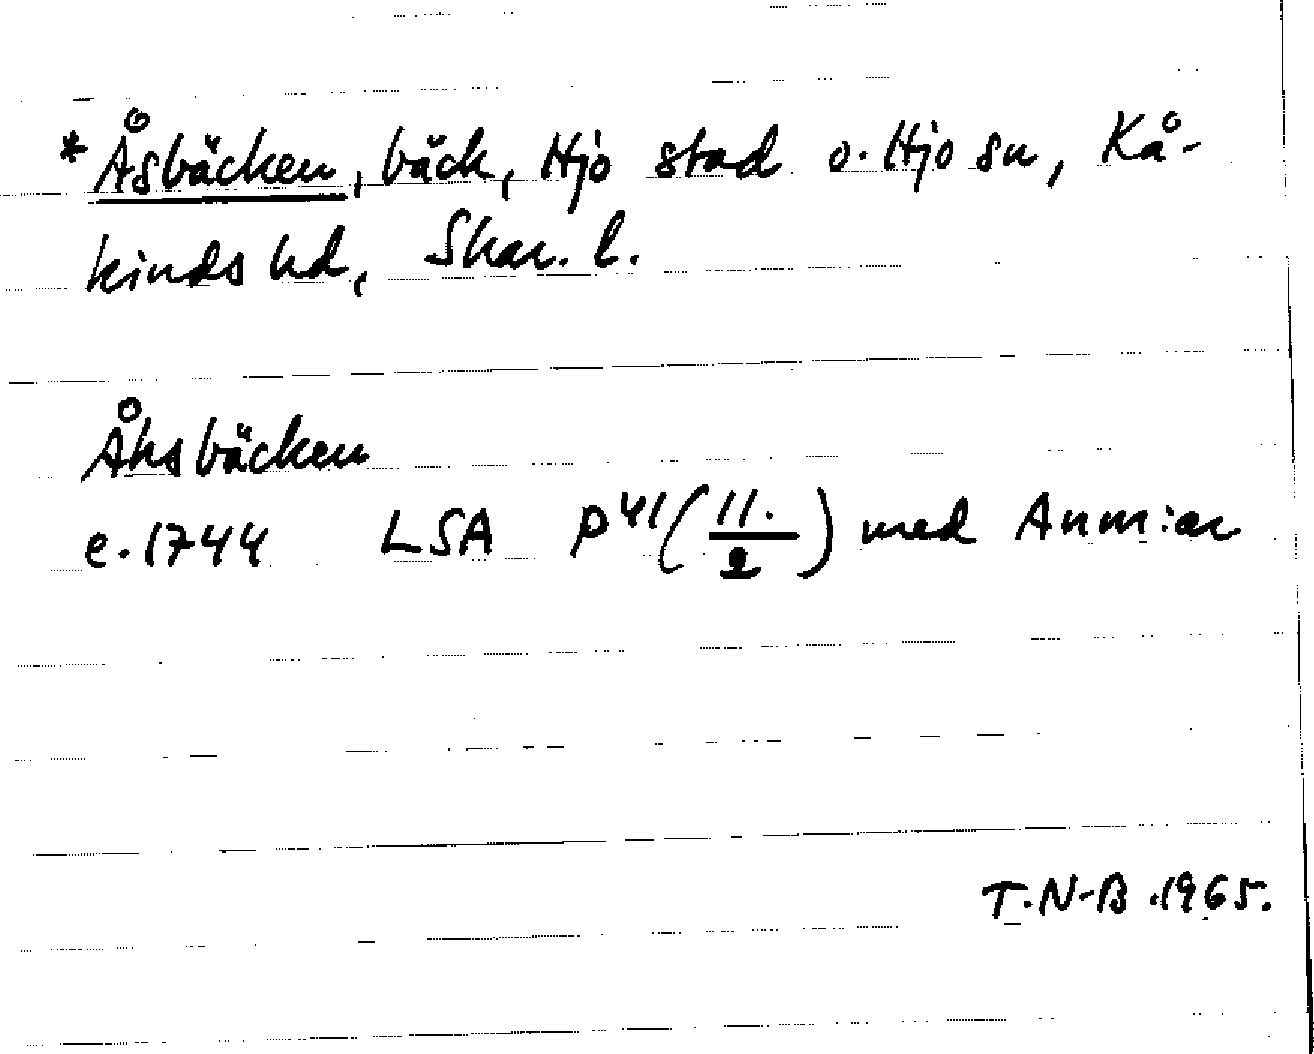 *Åsbäcken, bäck, Hjo stad o. Hjo sn, Kå-
kinds hd, Skar. l.
Åhsbäcken
e. 1744 LSA P41 (11./2) med Anm:ar
T.N-B .1965.